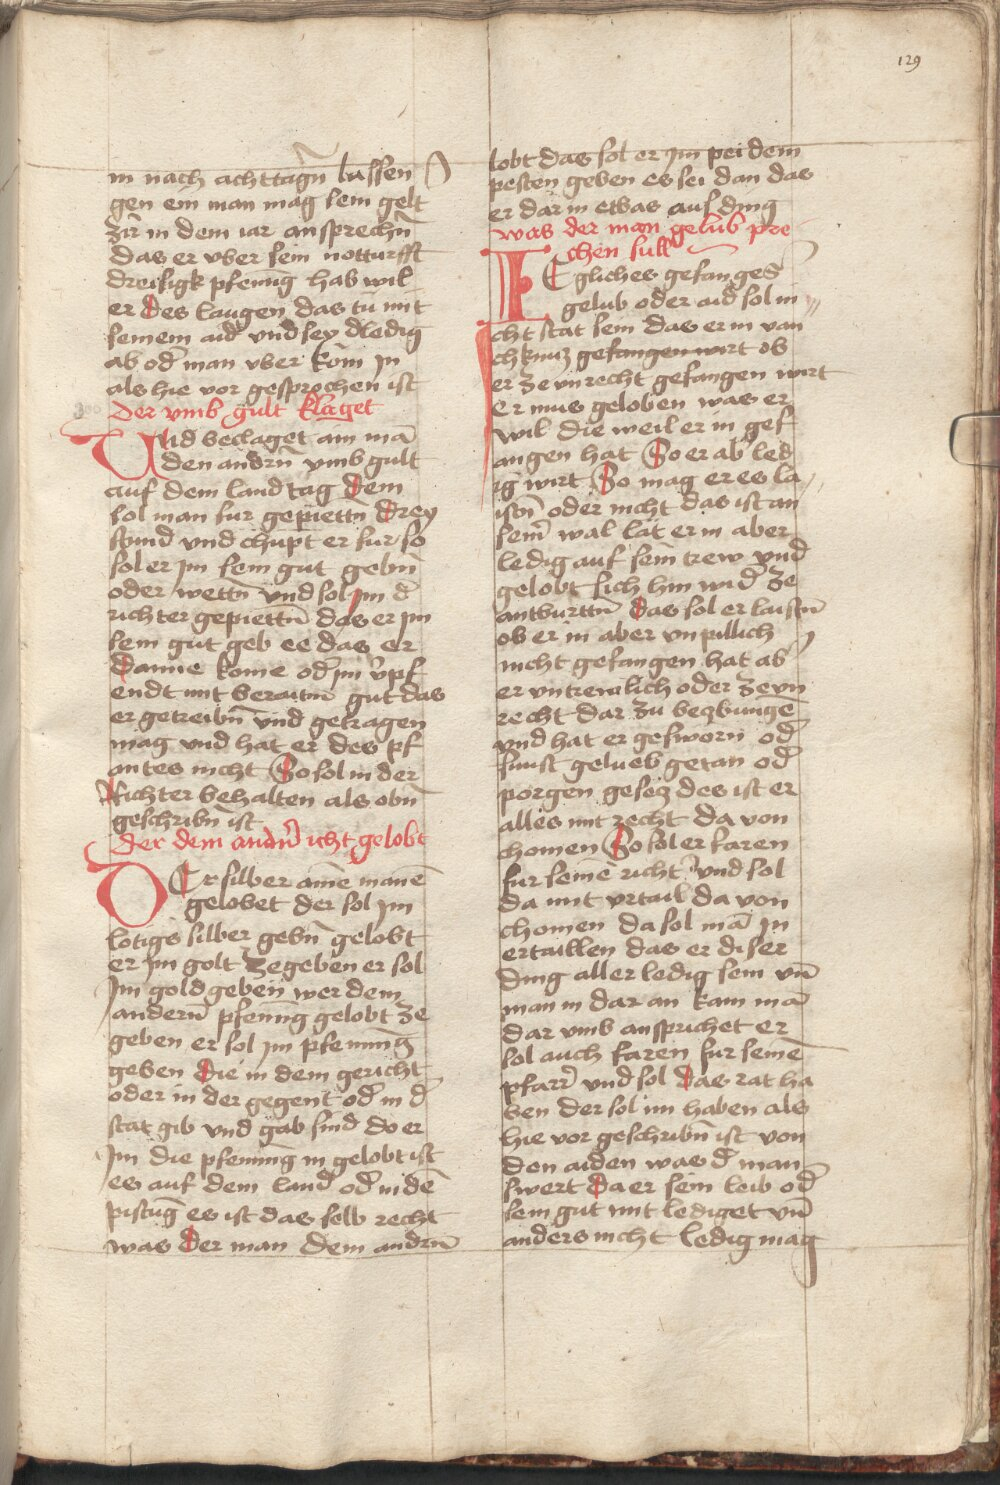 129
in nach achttagn̄ lassen
gen ein man mag sein gelt
zu᷑ in dem iar ansprechn̄
das er vber sein notturfft
dreisigk pfeninḡ hab wil
er des laugen das tu mit
seinem aid vnd sey dledig
ab od̄ man vber kom̄ Jn
als hie vor gesprochen ist
der vmb gult klaget
Vnd beclaget ain mā
den andrn̄ vmb gult
auf dem landtag dem
sol man fur gepiettn̄ drey
stund vnd chupt er fur so
sol er Jm sein gut gebn̄
oder wettn̄ vnd sol im d̄
richter gepiettn̄ das er Jm
sein gut geb ee das er
danne kome od̄ im v̄pf
endt mit beraittm̄ gut das
er getreibn̄ vnd getragen
mag vnd hat er des pf
antes nicht So sol in der
Richter behalten als obn̄
geschribn̄ ist
der dem andrn̄ icht gelobt
DEr silber aine᷑ manē
gelobet der sol Jm
lotigs silber gebn̄ gelobt
er Jm golt ze geben er sol
Jm gold geben wer dem
andern̄ pfening gelobt ze
geben er sol Jm pfenninḡ
geben die in dem gericht
oder in der gegent od̄ in d̄
stat gib vnd gab sind do er
Jm die pfening in gelobt ist
es auf dem land̄ od̄ in dē
pistuḡ es ist das selb recht
was der man dem andrn̄
lobt das sol er Jm pei dem
pesten geben es sei dan das
er dar in etbas aus ding
was der man gelub pre
chen sull
IEgliches gefanges̄
gelub oder aid sol ni
cht stat sein das er in van
chknuz gefangen wirt ob
er ze vnrecht gefangen wirt
er mus geloben was er
wil die weil er in gef
angen hat So er ab᷑ led
ig wirt So mag er es la
istn̄ oder nicht das ist an
sein̄ wal lät er in aber
ledig auf sein trew vnd
gelobt sich hin wid̄ ze
antburttn̄ das sol er laistn̄
ob er in aber vnpillich
nicht gefangen hat ab᷑
er vntrewlich oder ze vn
recht dar zu bezbungē
vnd hat er gesworn od̄
sunst gelueb getan od̄
porgen gesecz des ist er
alles mit recht da von
chomen So sol er faren
fur seinē richt᷑ vnd sol
da mit vrtail da von
chomen da sol mā Jn
ertaillen das er diser
ding aller ledig sein vn̄
man in dar an kain mā
dar vmb ansprichet er
sol auch faren fur seinē
pfarr᷑ vnd sol das rat ha
ben der sol im haben als
hie vor geschribn̄ ist von
den aiden was d̄ man
swert da er sein leib od̄
sein gut mit lediget vn̄
anders nicht ledig mag